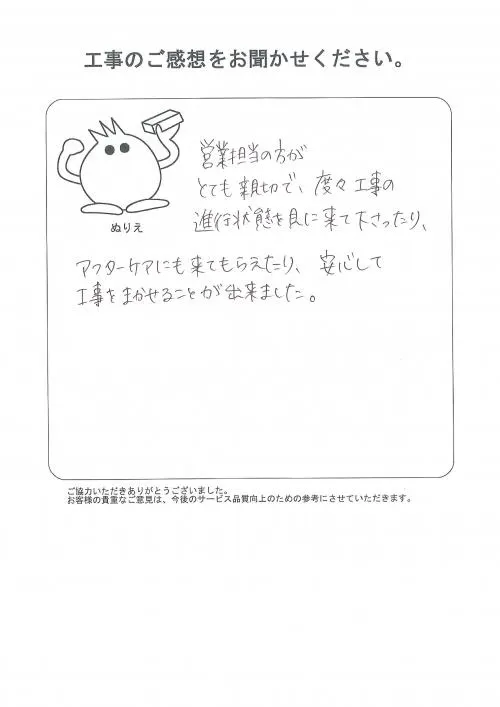 工事のご感想をお聞かせください。
営業担当の方が
とても親切で、度々工事の
進行状態を見に来て下さったり、
ぬりえ
アフターケアにも来てもらえたり、安心して
工事をまかせることが出来ました。
ご協力いただきありがとうございました。
お客様の貴重なご意見は、今後のサービス品質向上のための参考にさせていただきます。